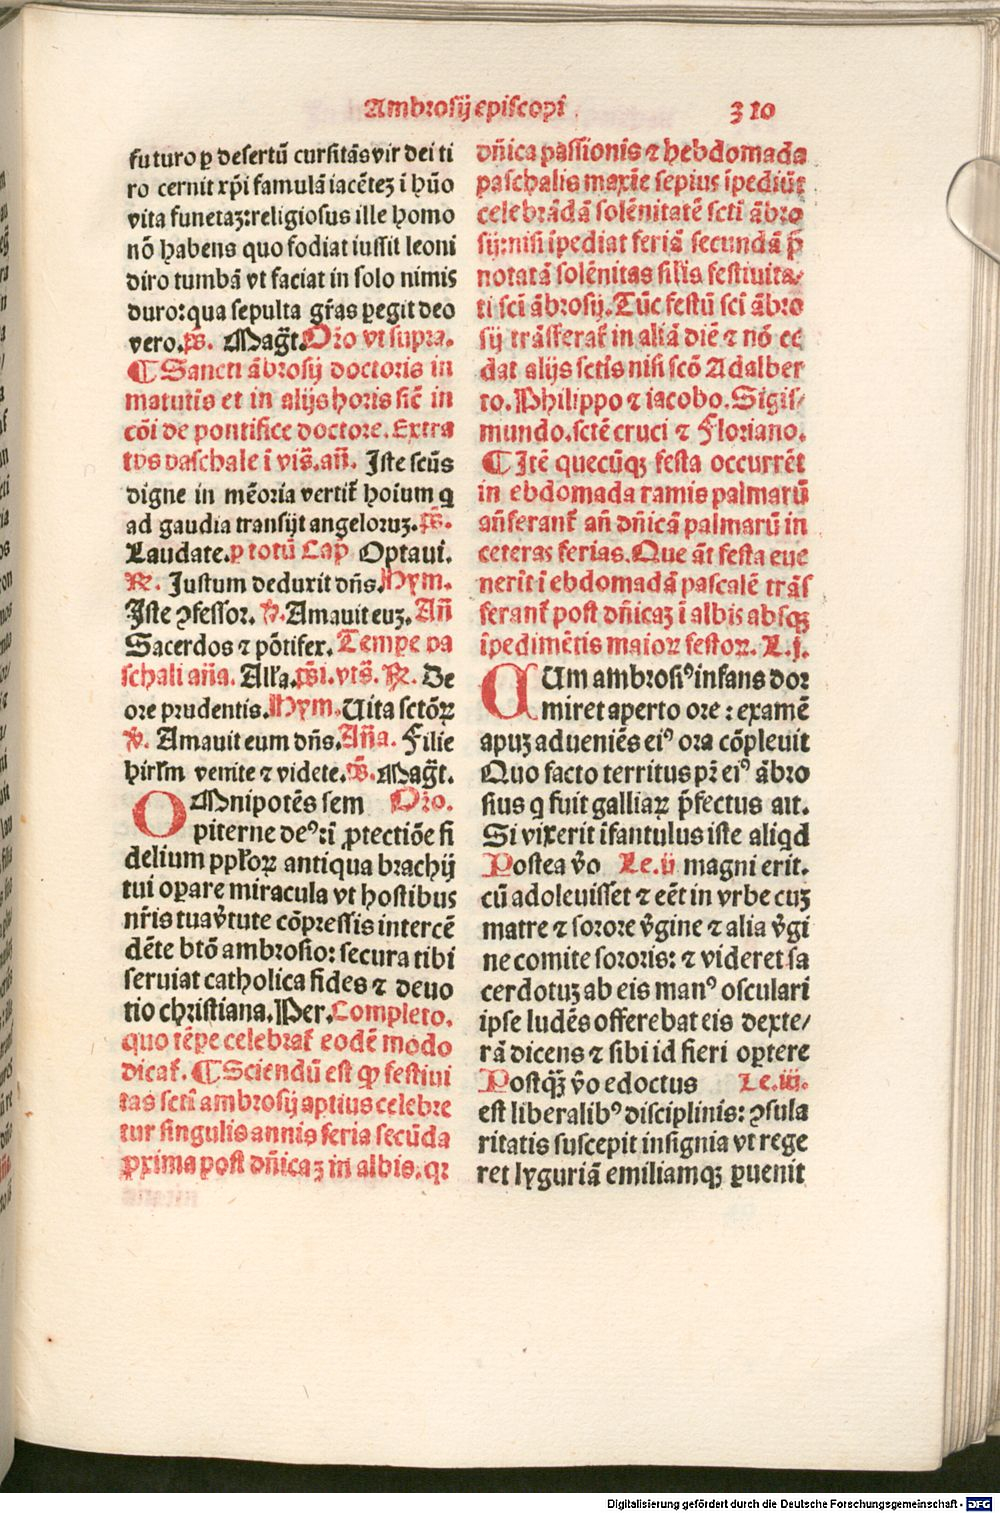 Ambrosij episcopi 310
futuro ꝑ desertū cursitās vir dei ti
ro cernit xp̄i famulā iacētez ī hūo
vita funetaz: religiosus ille homo
nō habens quo fodiat iussit leoni
diro tumbā vt faciat in solo nimis
duro: qua sepulta gr̄as ꝑegit deo
vero. p̄s. Magt̄. Or̄o vt supra.
¶ Sancti ābrosij doctoris in
matutīs et in alijs horis sic̄ in
cōi de pontifice doctore. Extra
tp̄s paschale ī vis̄. an̄. Iste scūs
digne in mēoria vertit̄ hoīum q
ad gaudia transijt angeloruz. p̄s.
Laudate. ꝑ totū Cap̄ Optaui.
℟. Iustum deduxit dn̄s. Hym.
Iste ꝯfessor. ℣. Amauit euz. An̄
Sacerdos ⁊ pōtifex. Tempe pa
schali an̄a. Alľa. p̄s i. vts̄. ℟. De
ore prudentis. Hym. Uita sctōꝝ
℣. Amauit eum dn̄s. An̄a. Filie
hirľm venite ⁊ videte. p̄s. Magt̄.
OMnipotēs sem Oro.
piterne deꝰ: ī ꝓtectiōe fi
delium ppľoꝝ antiqua brachij
tui oꝑare miracula vt hostibus
nr̄is tua v̄tute cōpressis intercē
dēte btō ambrosio: secura tibi
seruiat catholica fides ⁊ deuo
tio christiana. Per. Completo.
quo tēꝑe celebrat̄ eodē modo
dicat̄. ¶ Sciendū est ꝙ festiui
tas sctī ambrosij aptius celebre
tur singulis annis feria secūda
ꝓxima post dn̄icaz in albis. qꝛ
dn̄ica passionis ⁊ hebdomada
paschalis maxīe sepius īpediūt
celebrādā solēnitatē sctī ābro
sij: nisi īpediat feriā secundā p̄
notatā solēnitas siľis festiuita/
ti scī ābrosij. Tūc festū scī ābro
sij trāsferat̄ in aliā diē ⁊ nō ce
dat alijs sctīs nisi scō Adalber
to. Philippo ⁊ iacobo. Sigis/
mundo. sctē cruci ⁊ Floriano.
¶ Itē quecūqꝫ festa occurrēt
in ebdomada ramis palmarū
an̄ferant̄ an̄ dn̄icā palmarū in
ceteras ferias. Que āt festa eue
nerīt ī ebdomadā pascalē trās
ferant̄ post dn̄icaz ī albis absqꝫ
īpedimētis maioꝝ festoꝝ. L. j.
CUm ambrosiꝰ infans dor
miret aperto ore: examē
apuz adueniēs eiꝰ ora cōpleuit
Quo facto territus pr̄ eiꝰ ābro
sius q fuit galliaꝝ p̄fectus ait.
Si vixerit īfantulus iste aliqd
Postea v̄o Le. ij magni erit.
cū adoleuisset ⁊ eēt in vrbe cuz
matre ⁊ sorore v̄gine ⁊ alia v̄gi
ne comite sororis: ⁊ videret sa
cerdotuz ab eis manꝰ osculari
ipse ludēs offerebat eis dexte/
rā dicens ⁊ sibi id fieri oꝑtere
Postqꝫ̄ v̄o edoctus Le. iij.
est liberalibꝰ disciplinis: ꝯsula
ritatis suscepit insignia vt rege
ret lyguriā emiliamqꝫ ꝑuenit
Digitalisierung gefördert durch die Deutsche Forschungsgemeinschaft - DFG